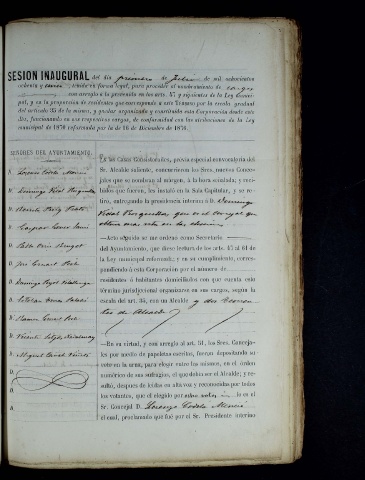 SESION INAUGURAL del dia primero de Julio de mil ochocientos
ochenta y habida en forma legal, para proceder al nombramiento de cargos
con arreglo á lo prevenido en los arts. 47 y siguientes de la Ley munici-
pal, y en la proporcion de residentes que corresponde a este Término por la escala gradual
del artículo 35 de la misma, y quedar organizada y constituida esta Corporacion desde este
dia, funcionando en sus respectivos cargos, de conformidad con las atribuciones de la Ley
municipal de 1870 reformada por la de 16 de Diciembre de 1876.
SEÑORES DEL AYUNTAMIENTO.
D. Lorenzo
D. Domingo Vidal
D. Vicente Puig
D. Gaspar
D. Pablo
D. José
D. Domingo
D. Esteban
D. Ramon
D. Vicente
D. Miguel
D.
D.
En las Casas Consistoriales, prévia especial convocatoria del
Sr. Alcalde saliente, concurrieron los Sres. nuevos Conceja-
les que se nombran al márgen, á la hora señalada; y reci-
bidos que fueron, les instaló en la Sala Capitular, y se re-
tiró, entregando la presidencia interina á D. Domingo
Vidal que es el concejal que
obtuvo mas votos en la eleccion
—Acto seguido se me ordenó como Secretario
del Ayuntamiento, que diese lectura de los arts. 45 al 61 de
la Ley municipal reformada; y en su cumplimiento, corres-
pondiendo á esta Corporacion por el número de
residentes ó habitantes domiciliados con que cuenta este
término jurisdiccional organizarse en sus cargos, segun la
escala del art. 35, con un Alcalde y dos Tenien-
tes de Alcalde
—En su virtud, y con arreglo al art. 51, los Sres. Conceja-
les por medio de papeletas escritas, fueron depositando su
voto en la urna, para elegir entre los mismos, en el órden
numérico de sus sufragios, el que debia ser el Alcalde; y re-
sultó, despues de leidas en alta voz y reconocidas por todos
los votantes, que el elegido por votos lo es
el Sr. Concejal D. Lorenzo
el cual, proclamado que fué por el Sr. Presidente interino